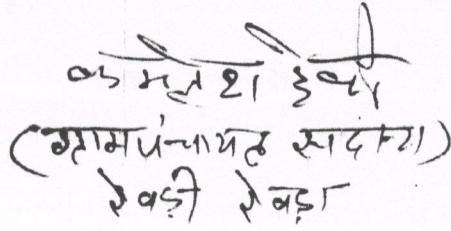 कमलेश देवी
(ग्रामपंचायत सदस्य)
रेवड़ी रेवड़ा